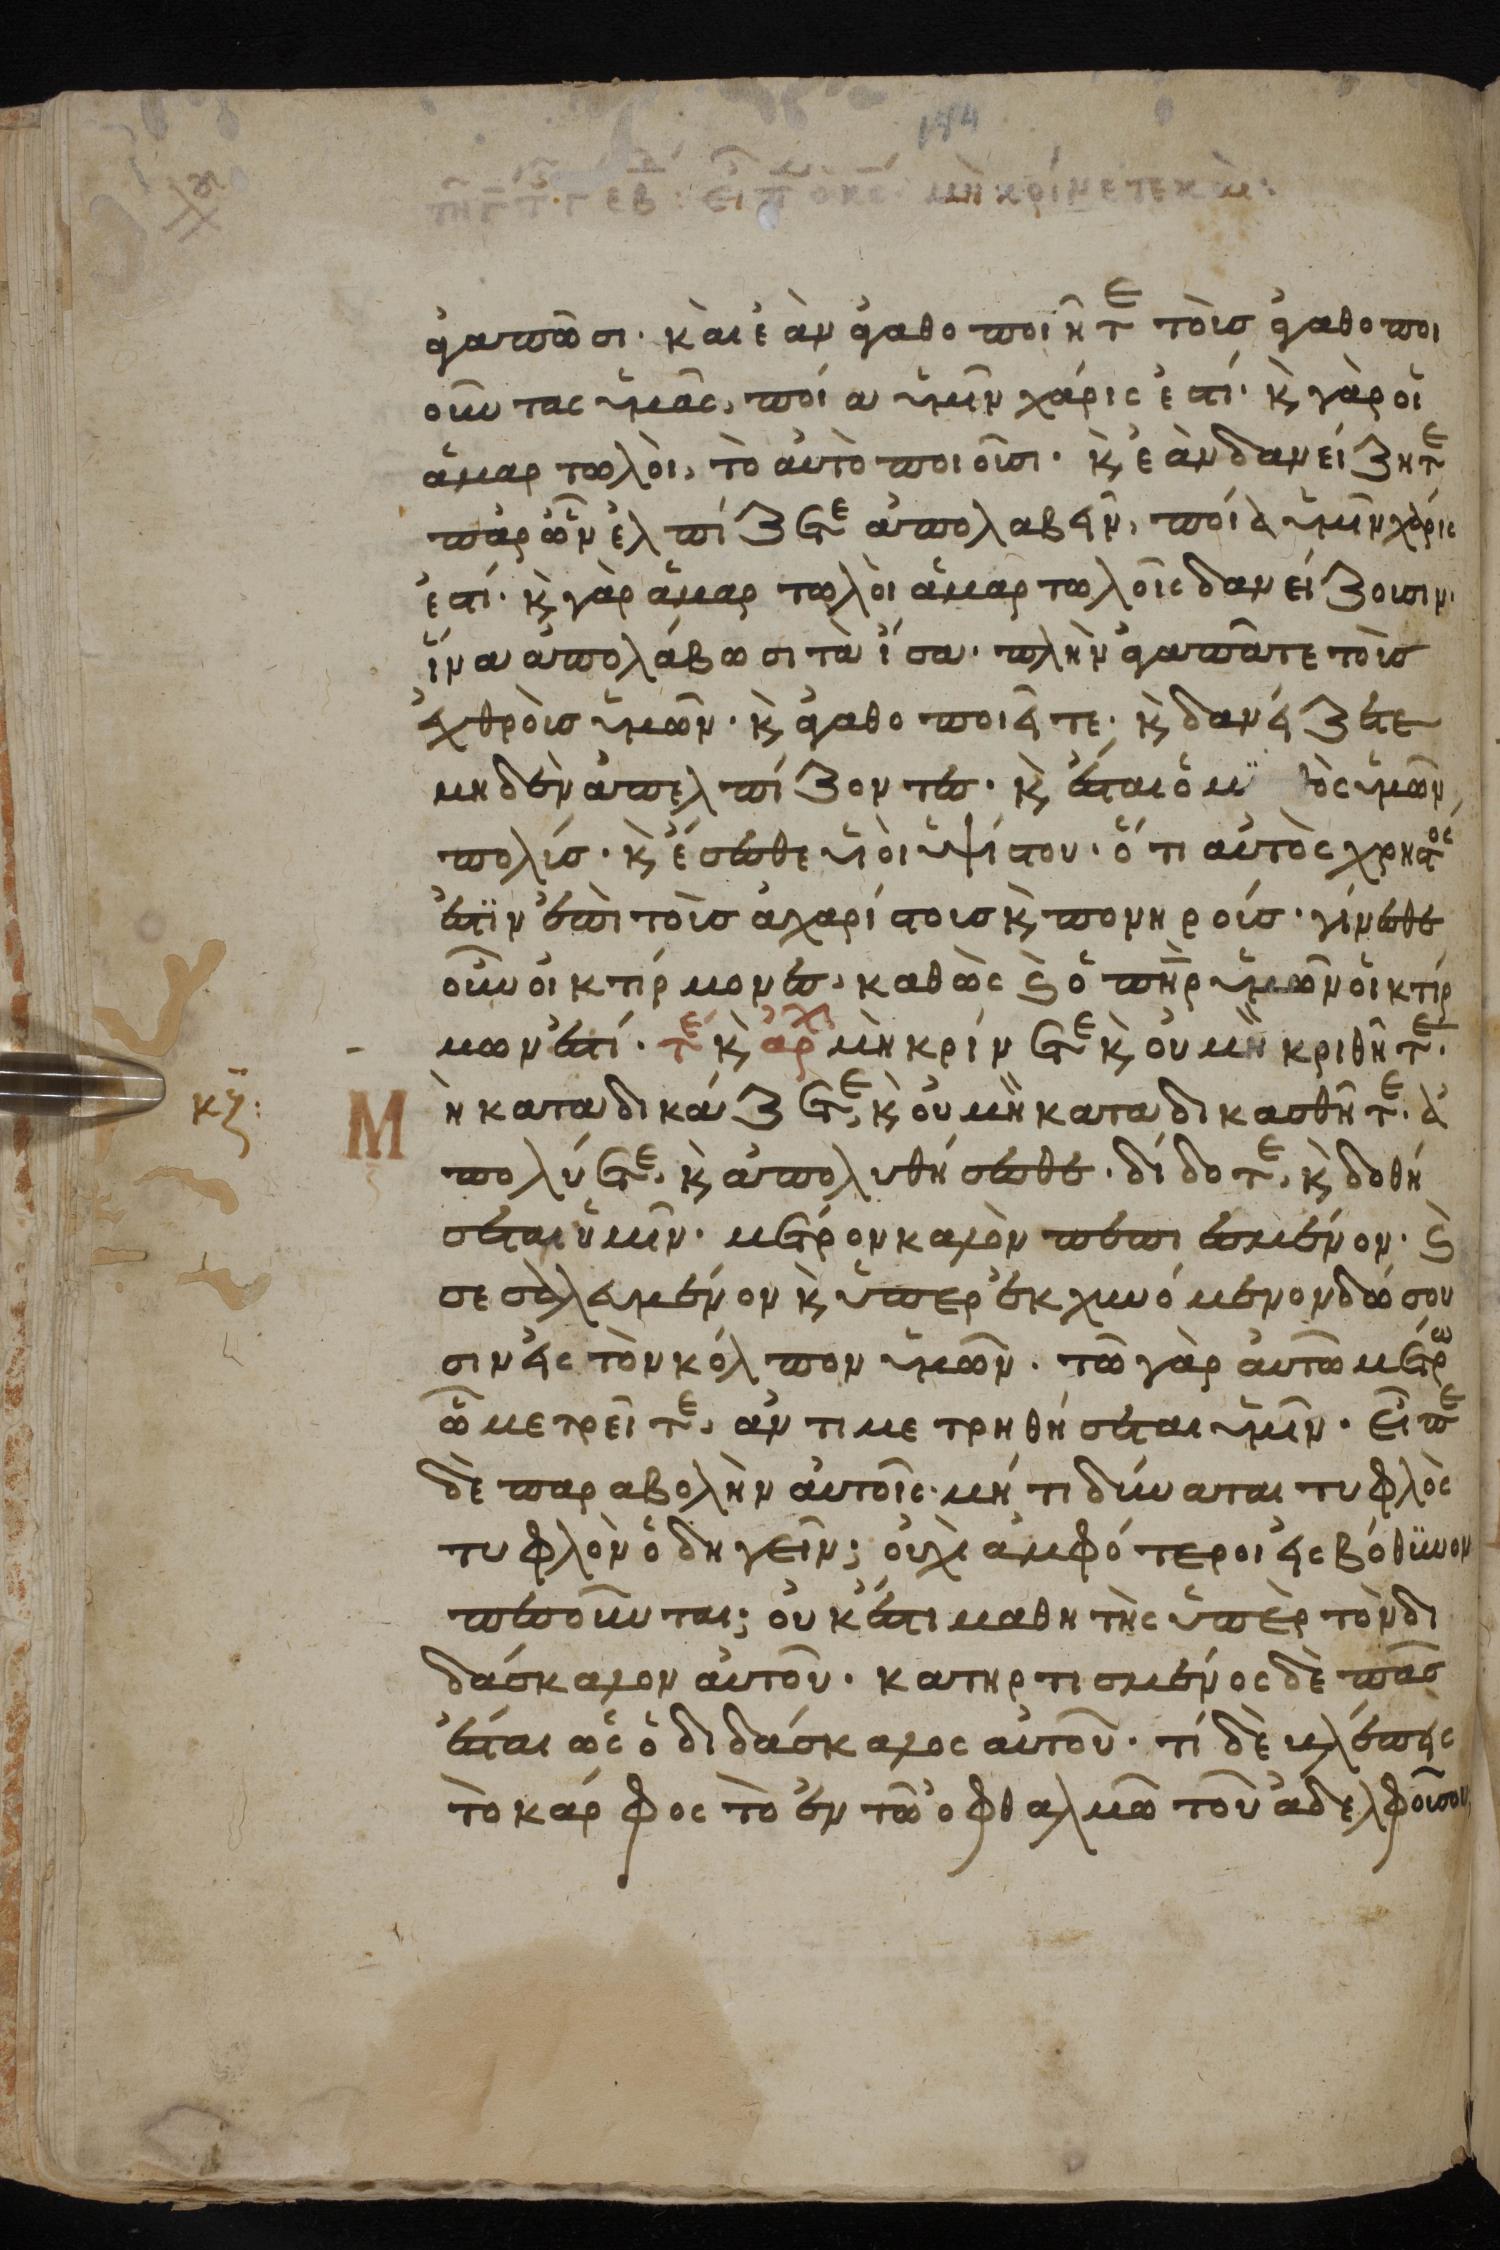 ἀγαπῶσι. καὶ ἐὰν ἀγαθοποιῆτε τοῖς ἀγαθοποι
οῦντας ὑμᾶς, ποία ὑμῖν χάρις ἐστί. κ γὰρ οἱ
ἁμαρτωλοὶ, τὸ αὐτὸ ποιοῦσι. κ ἐὰν δανείζητε
παρ ὧν ἐλπίζετε ἀπολαβεῖν, ποία ὑμῖν χάρις
ἐστί. κ γὰρ ἁμαρτωλοὶ ἁμαρτωλοῖς δανείζουσιν.
ἵνα ἀπολάβωσι τὰ ἴσα. πλὴν ἀγαπᾶτε τοὺς
ἐχθροὺς ὑμῶν. κ ἀγαθοποιεῖτε. κ δανείζετε
μηδὲν ἀπελπίζοντες. κ ἔσται ὁ μ θὸς ὑμῶν
πολύς. κ ἔσεσθε υἱοὶ ὑψίστου. ὅτι αὐτὸς χρηστός
ἐστϊν ἐπὶ τοὺς ἀχαρίστους κ πονηρούς. γίνεσθε
οὖν οἰκτίρμονες, καθὼς κ ὁ πὴρ ὑμῶν οἰκτίρ
μων ἐστί. τέ κ ἀρχ μὴ κρίνετε κ οὐ μὴ κριθῆτε.
κζ:
Μὴ καταδικάζετε, κ οὐ μὴ καταδικασθῆτε. ἀ
πολύετε, κ ἀπολυθήσεσθε. δίδοτε, κ δοθή
σεται ὑμῖν. μέτρον καλὸν πεπιεσμένον. κ
σεσαλευμένον κ ὑπερεκχυνόμενον δώσου
σιν εἰς τὸν κόλπον ὑμῶν. τῶ γὰρ αὐτῶ μέτρω
ὧ μετρεῖτε, ἀντιμετρηθήσεται ὑμῖν. εἶπε
δὲ παραβολὴν αὐτοῖς. μήτι δύναται τυφλὸς
τυφλὸν ὁδηγεῖν; οὐχὶ ἀμφότεροι εἰς βόθϋνον
πεσοῦνται; οὐκ ἔστι μαθητὴς ὑπὲρ τὸν δι
δάσκαλον αὐτοῦ. κατηρτισμένος δὲ πᾶς
ἔσται ὡς ὁ διδάσκαλος αὐτοῦ. τί δὲ βλέπεις
τὸ κάρφος τὸ ἐν τῶ ὀφθαλμῶ τοῦ ἀδελφοῦ σου,